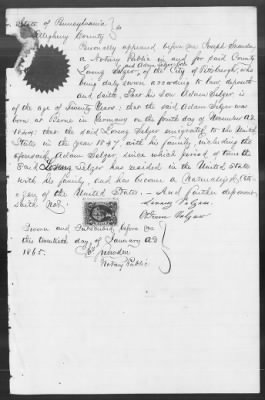 State of Pennsylvania
Allegheny County
Personally appeared before me Joseph
a Notary Public in and for said County
and Adam Selger
Selger, of the City of Pittsburgh, who
being duly sworn according to law deposeth
and saith, That his son Adam Selger is
of the age of Twenty Years: that the said Adam Selger was
born at in Germany on the fourth day of November A.D.
1844: that the said Selger emigrated to the United
States in the year 1847, with his family, including the
aforesaid Adam Selger, since which period of time the
Said Selger has resided in the United States
with his family, and has become a naturalized Cit-
izen of the United States:- And further deponent
saith not.
Sworn and Subscribed before me
this twentieth day of January A.D.
1865.
Notary Public